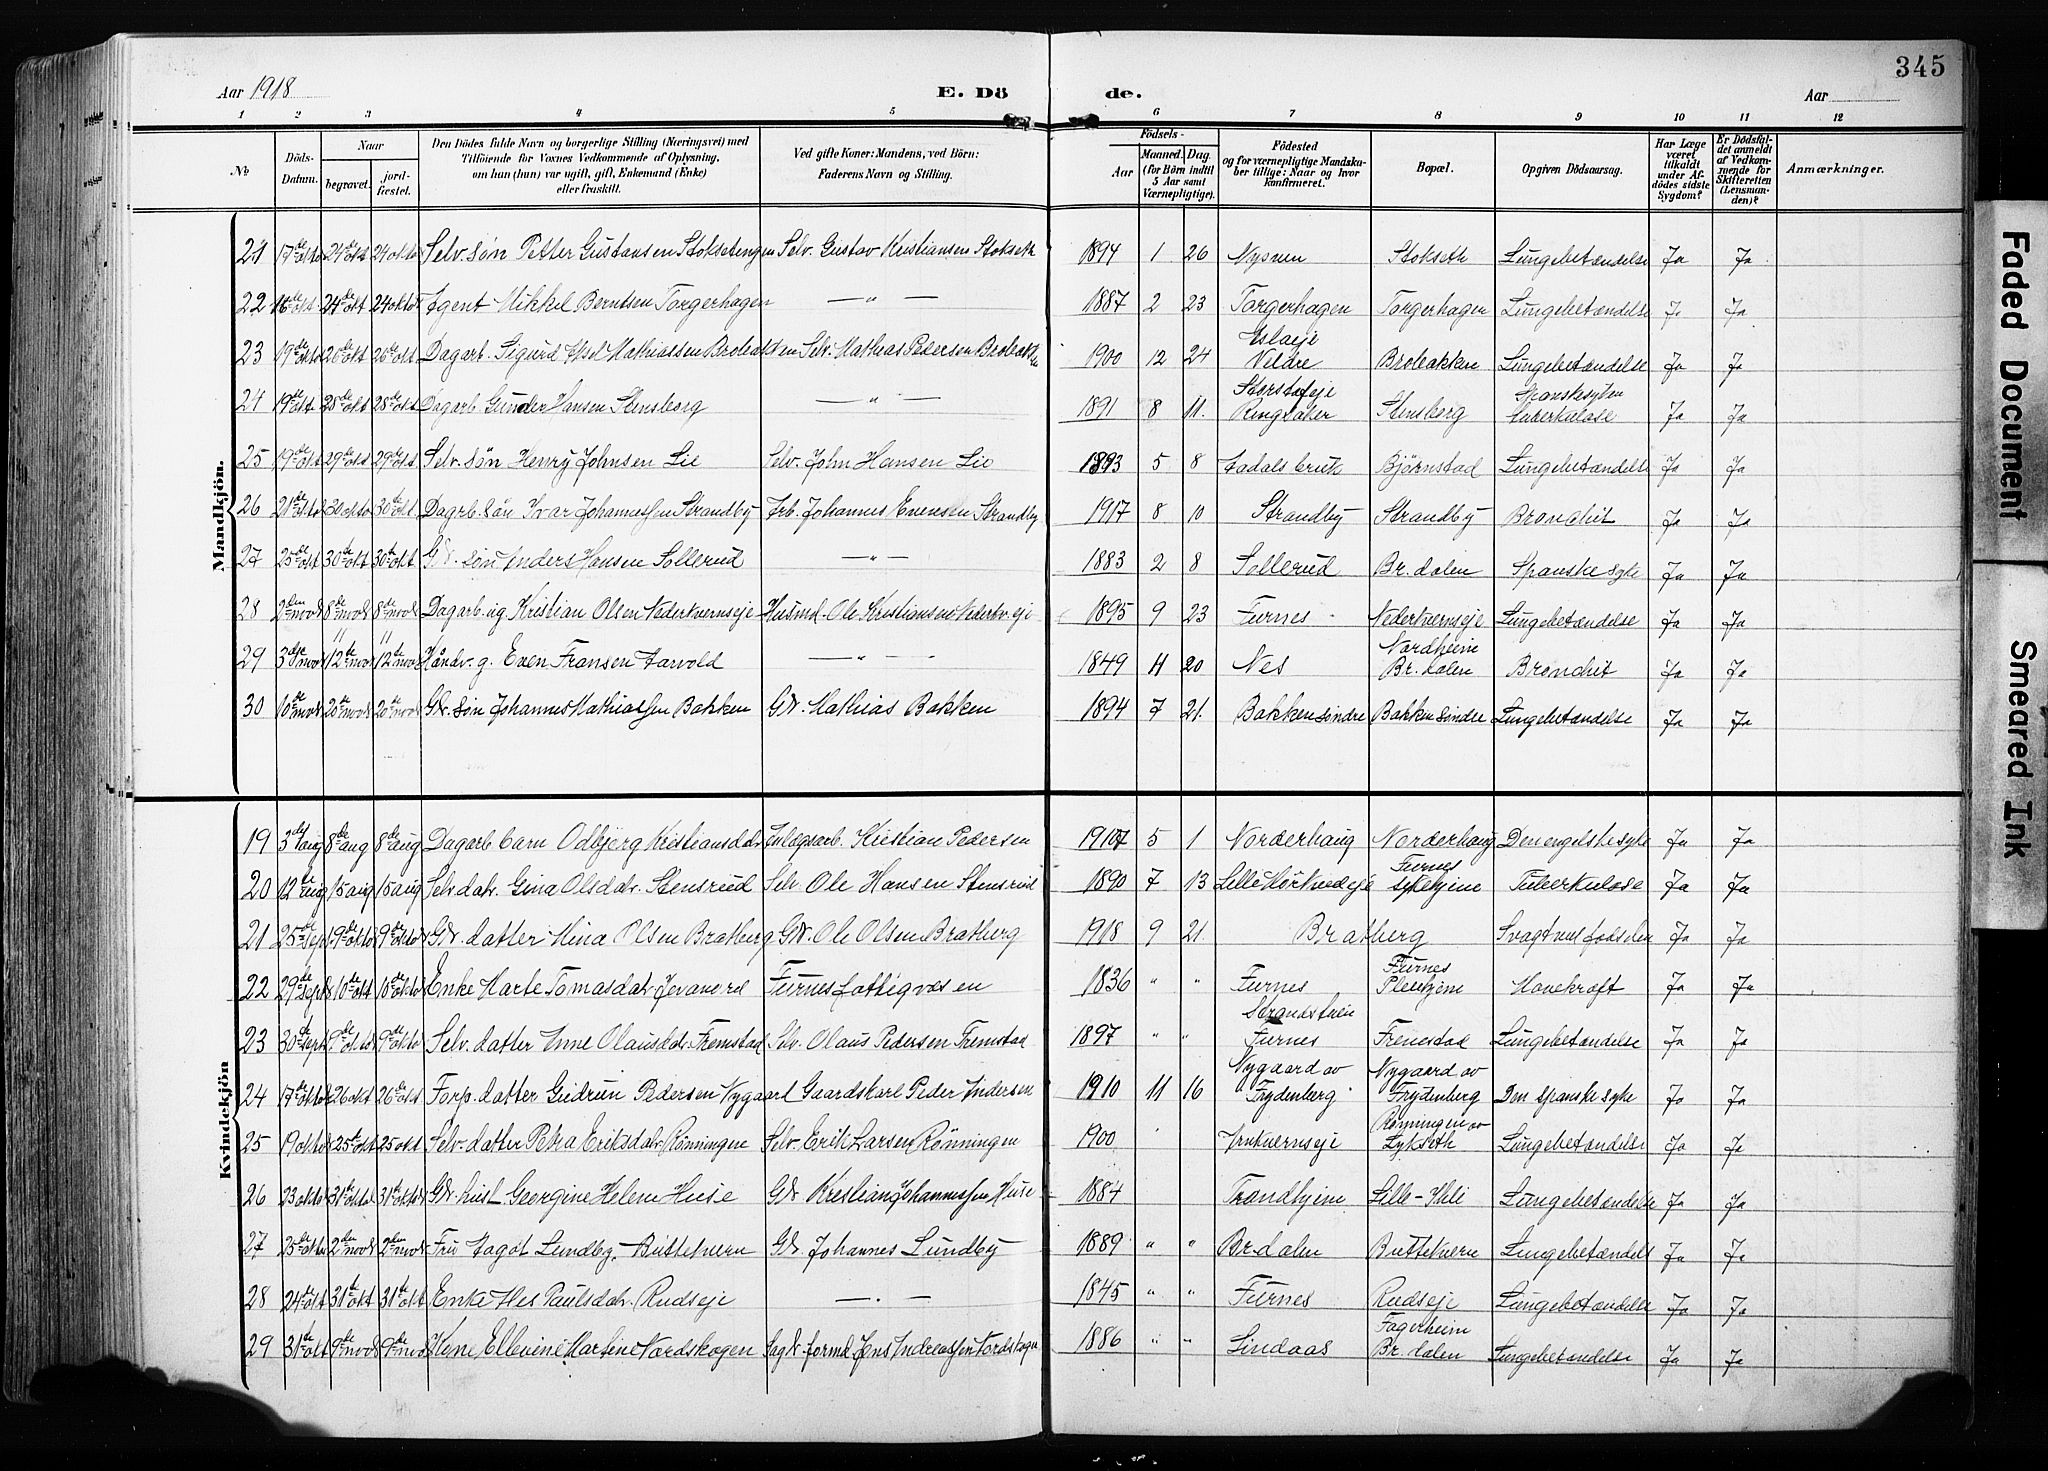 345
Aar 1918
E. Dö
de.
Aar
1 2 3 4 5 6 7 8 9 10 11 12
No
Döds-Datum.
Naar
begravet.
jordfæstet.
Den Dödes fulde Navn og borgerlige Stilling (Næringsvei) med
Tilföiende for Voxnes Vedkommende af Oplysning,
om han (hun) var ugift, gift, Enkemand (Enke)
eller fraskilt.
Ved gifte Koner: Mandens, ved Börn:
Faderens Navn og Stilling.
Födsels-
Aar
Maaned. Dag.
(for Börn indtil
5 Aar samt
Værnepligtige).
Födested
og for værnepligtige Mandskaber tillige: Naar og hvor
konfirmeret.
Bopæl.
Opgiven Dödsaarsag.
Har Læge
været
tilkaldt
under Afdödes sidste
Sygdom?
Er Dödsfaldet anmeldt
af Vedkommende for
Skifteretten
(Lensmanden)?
Anmærkninger.
Mandkjön.
21 17de okto 24de okt 24 okto Selv. søn Petter Gustavsen Stoksetengen Selv. Gustav Kristiansen Stokseth 1894 1 26 Nysven Stokseth Lungebetændelse Ja Ja
22 16de okt 24de okt 24 okto Agent Mikkel Berntsen Torgerhagen — " — 1887 2 23 Torgerhagen Torgerhagen Lungebetændelse Ja Ja
23 19de okto 26de okt 26de okt Dagarb. Sigurd Mathiassen Brobakken Selv. Mathias Pedersen Brobakken 1900 12 24 Veldre Brobakken Lungebetændelse Ja Ja
24 19de okt 28de okt 28de okt Dagarb. Gunder Hansen Stensberg — " — 1891 8 11. Ringsaker Stensberg Spanskesyken tuberkulose Ja Ja
25 19de okt 29de okt 29de okt Selv. søn Henry Johnsen Lie Selv. John Hansen Lie 1893 5 8 Aadalsbruk Bjørnstad Lungebetændelse Ja Ja
26 21de okto 30 okto 30te okt Dagarb. søn Ivar Johannessen Strandby Arb. Johannes Evensen Strandby 1917 8 10 Strandby Strandby Bronchit Ja Ja
27 25de okt 30te okt 30te okt Gbr. søn Anders Hansen Sollerud — " — 1883 2 8 Sollerud Br.dalen Spanske syke Ja Ja
28 2den novb 8de novb 8de novb Dagarb. ug Kristian Olsen Nederkvernseje Husmd. Ole Kristiansen Nederkv.eje 1895 9 23 Furnes Nederkvernseje Lungebetændelse Ja Ja
29 3dje nov 12te nov 12te nov Håndv. g. Even Fransen Aarvold — " — 1849 11 20 Nes Nordheim Br.dalen Bronchit Ja Ja
30 10de novb 20de novb 20de novb Gbr. søn Johannes Mathiassen Bakken Gbr. Mathias Bakken 1894 7 21. Bakken søndre Bakken søndre Lungebetændelse Ja Ja
Kvindekjön
19 3dje aug 8de aug 8de aug Dagarb barn Odbjørg Kristiansdatr. Kristian Pedersen 1917 5 1 Norderhaug Norderhaug Den engelske syke Ja Ja
20 12te aug 15 aug 15 aug Selv. datr. Gina Olsdatr. Stensrud Selv. Ole Hansen Stensrud 1890 7 13 Furnes sykehjem Tuberkulose Ja Ja
21 25de sept 9de okto 9de okto Gbr. datter Mina Olsen Bratberg Gbr. Ole Olsen Bratberg 1918 9 21. Bratberg Svagt ved fødselen Ja Ja
22 29de sept 10de okt 10de okto Enke Marte Tomasdatr Furnes fattigvæsen 1836 " " Furnes Furnes Pleiehjem Mavekræft Ja Ja
23 30te sept 9de okto 9de okto Selv. datter Anne Olausdatr. Fremstad Selv. Olaus Pedersen Fremstad 1897 " " Furnes Fremstad Lungebetændelse Ja Ja
24 17de okto 26 okt 26de okt Forp. datter Gudrun Pedersen Nygaard Gaardskarl Peder Andersen 1910 11 16 Nygaard av Frydenberg Nygaard av Frydenberg Den spanske syke Ja Ja
25 19 okto 25te okt 25 okt Selv. datter Petra Eriksdatr. Rønningen Selv. Erik Larsen Rønningen 1900 Rønningen av Lykseth Lungebetændelse Ja Ja
26 23 okto 31te okto 31te okto Gbr. hust Georgine Helene Huse Gbr Kristian Johannessen Huse 1884 Trondhjem Lille-Ihle Lungebetændelse Ja Ja
27 25de okto 2den novb 2den novb Fru Aagot Lundby, Buttekvern Gbr. Johannes Lundby 1889 " " Br.dalen Buttekvern Lungebetændelse Ja Ja
28 24de okt 31te okt 31te okt Enke Paulsdatr. Rudseje — . — 1845 " " Furnes Rudseje Lungebetændelse Ja Ja
29 31te okt 9de novb 9de novb Kone Ellevine Martine Nordskogen Sagbr. formd Jens Andreassen Nordskogen 1886 " " Lindaas Fagerheim Br.dalen Lungebetændelse Ja Ja
Faded Document
Smeared Ink